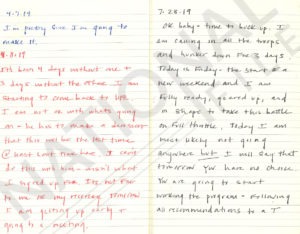 4-7-19
I'm pretty sure I'm going to
make it.
4-11-19
It's been 4 days without me +
3 days without the other. I am
starting to come back to life.
I am not ok with what's going
on - he has to make a decision
that this will be the last time
@ least last time here. I can't
do this with him - wasn't what
I signed up for. It's not fair
to me or my recovery. Tomorrow
I am getting up early +
going to a meeting.
7-28-19
OK baby - time to buck up. I
am calling in all the troops
and hunker down for 3 days.
Today is Friday - the start of a
new weekend and I am
fully ready, geared up, and
in shape to take this battle
on full throttle. Today I am
most likely not going
anywhere but I will say that
tomorrow you have no choice.
You are going to start
working the program - following
as recommendations to a T
NATIONAL